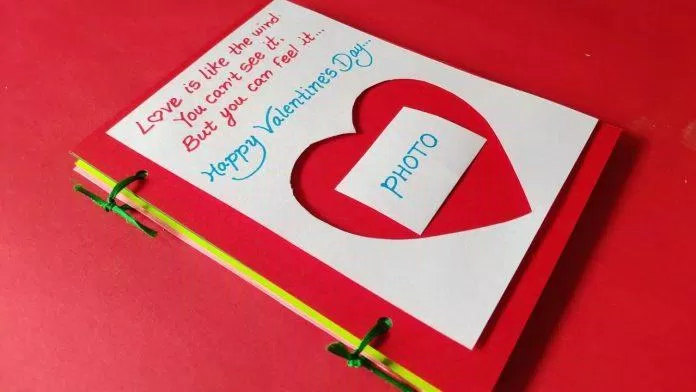 Love is like the wind
You can't see it,
But you can feel it...
Happy Valentine's Day...
PHOTO